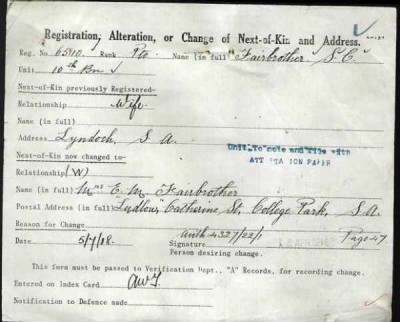 Registration, Alteration, or Change of Next-of-Kin and Address.
Reg. No. 6510 Rank Pte Name (in full) Fairbrother S.C.
Unit 10th Bn
Next-of-Kin previously Registered-
Relationship Wife
Name (in full)
Address Lyndoch, S A.
Unit to note and file with
ATTESTATION PAPER
Next-of-Kin now changed to-
Relationship (W)
Name (in full) Mrs E. M. Fairbrother
Postal Address (in full) "Ludlow," Catherine St, College Park, S.A.
Reason for Change
Auth 4327/22/1 Page 47
Date 5/7/18. Signature
Person desiring change.
This form must be passed to Verification Dept., "A" Records, for recording change.
Entered on Index Card
Notification to Defence made